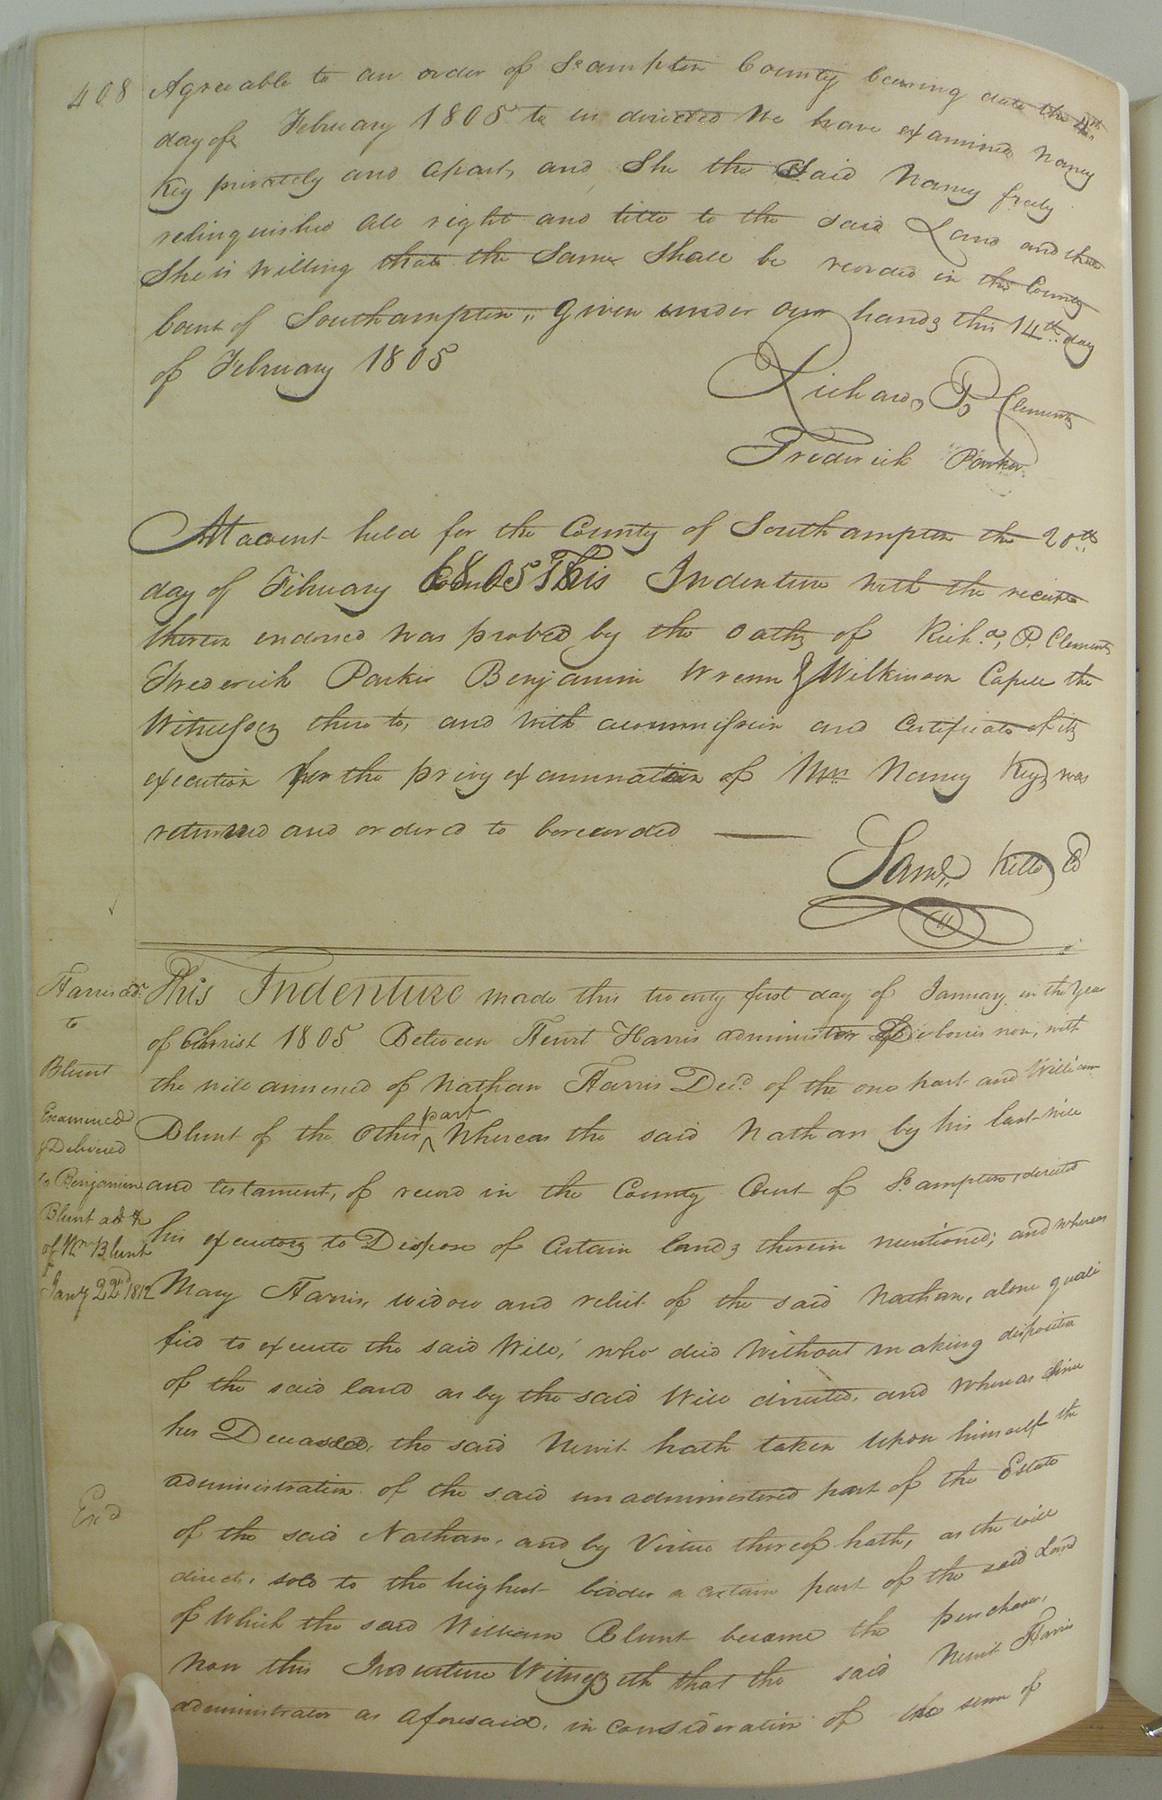 408
Agreeable to an order of So ampton County bearing date the
day of February 1805 to us directed We have examined Nancy
Key privately and apart, and She the Said Nancy freely
relinquished all right and title to the said Land and that
She is willing that the Same Shall be recorded in the County
Court of Southampton, Given under our hands this 14th day
of February 1805
Richard P Clements
Frederick Parker
At a court held for the County of Southampton the 20th
day of February 1805 This Indenture with the receipt
thereon endorsed was proved by the oaths of Richd. P. Clements
Frederick Parker Benjamin Wrenn & Wilkinson Capell the
Witnesses thereto, and with a commission and certificate of its
execution for the privy examination of Mrs Nancy Key, was
returned and ordered to be recorded
Saml. Kello CC
Harris adr.
to
Blunt
Examined
& Delivered
to Benjamin
Blunt
of Wm Blunt
Jany 22d 1812
Exd
This Indenture made this twenty first day of January in the Year
of Christ 1805 Between Newit Harris administrator De bonis non, with
the will annexed of Nathan Harris Decd. of the one part and William
Blunt of the other part Whereas the said Nathan by his last will
and testament, of record in the County Court of So ampton, directed
his executors to Dispose of Certain lands therein mentioned; and whereas
Mary Harris, widow and relict of the said Nathan, alone quali
fied to execute the said Will, who died Without making disposition
of the said land as by the said Will directed, and Whereas since
her Deceased, the said Newit hath taken upon himself the
administration of the said unadministered part of the Estate
of the said Nathan, and by Virtue thereof hath, as the will
directs, sold to the highest bidder a certain part of the said Land
of Which the said William Blunt became the purchaser,
Now this Indenture Witnesseth that the said Newit Harris
administrator as aforesaid, in consideration of the sum of